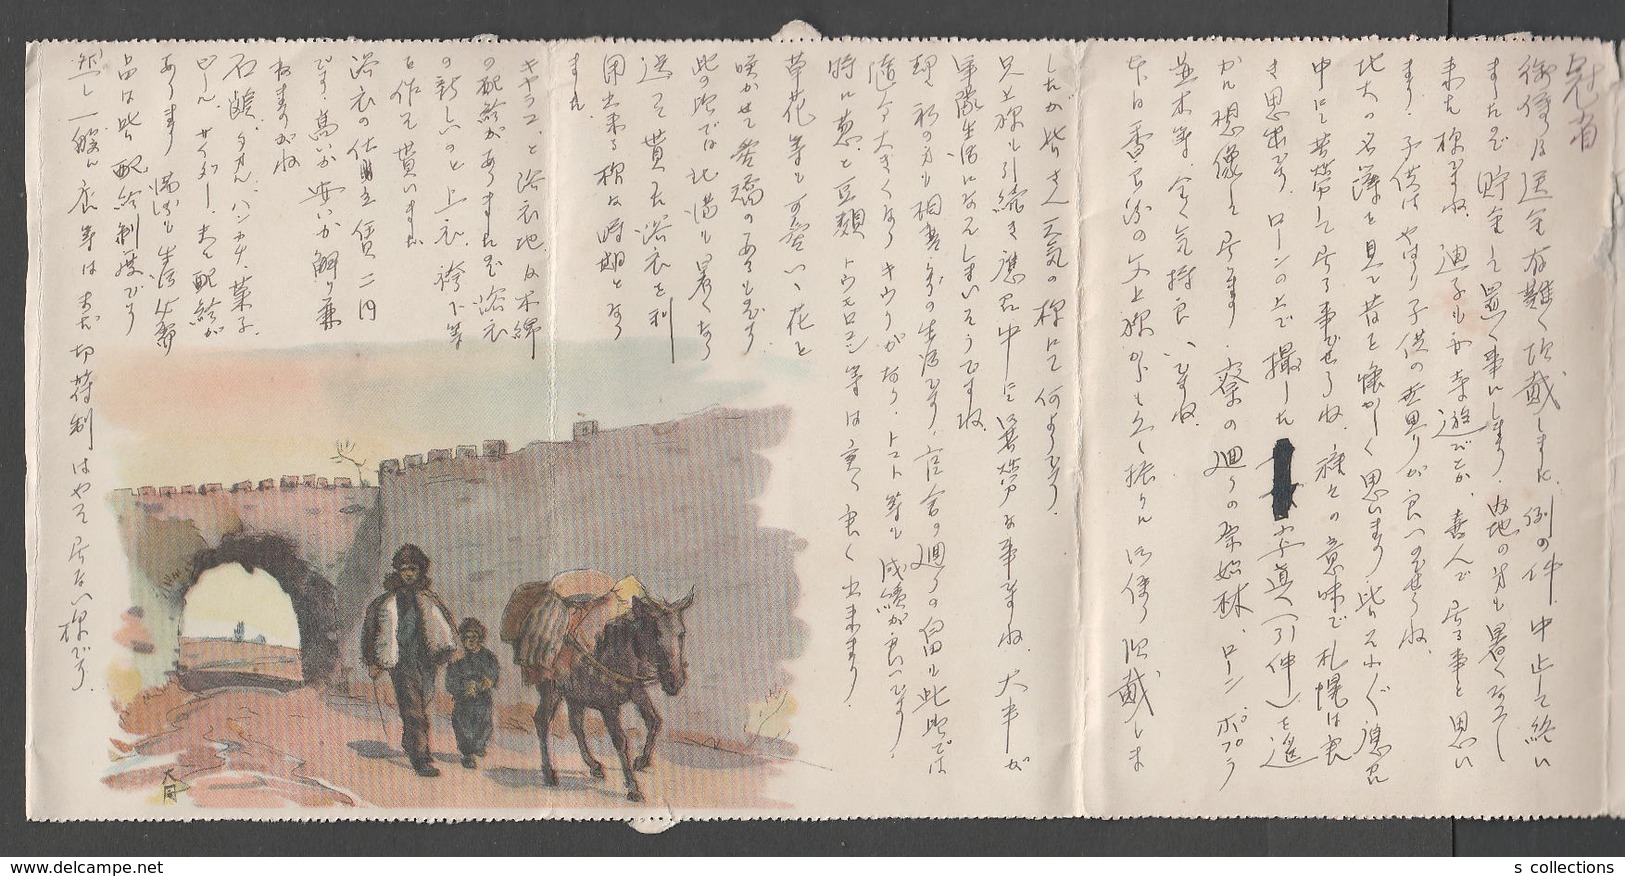 冠省
御便り及送金有難く頂戴しました 例の件 中止して終い
ましたので貯金して置く事にします. 内地の方も暑くなって
来た様ですね. 廸子もお寺遊びとか、喜んで居る事と思い
ます. 子供はやはり子供の世界が良いのでせうね.
北大の名簿を見て昔を懐かしく思います. 皆 応召
中にて苦労して居る事でせうね. 種々の意味で札幌は良
き思出です. ローンの上で撮した 写真(引伸)を送
想像して居ます. 寮の廻りの原始林、ローン ポプラ
並木等. 全く気持良いですね.
本日 の父上様からも久し振りに御便り頂戴しま
したが皆さん元気の様にて何よりです.
兄上様も引続き応召中にて御苦労な事ですね. 大事が
軍隊生活になんしまいそうですね.
私の方も相変らずの生活です. 官舎の廻りの畠も此頃では
随分大きくなり キウリがなり、トマト等も成績が良いです.
特に葱と豆類 トウモロコシ等は実に良く出来ます.
草花等も可愛いい花を
咲かせて
此の頃では北満も暑くなり
送って貰った浴衣を利
用出来る様な時期となり
ました
キャラコと浴衣地及木綿
の配給がありましたので浴衣
の新しいのと上衣、袴下等
を作って貰いました
浴衣の仕立賃二円
です. 高いか安いか解り兼
ねますがね
石鹸、タオル、ハンカチ、菓子.
ビール、サイダー. 配給が
あります 満洲も生活必需
品は皆 配給制度です
然し一般衣服等はまだ切符制はやって居ない様です.
大同
s collections